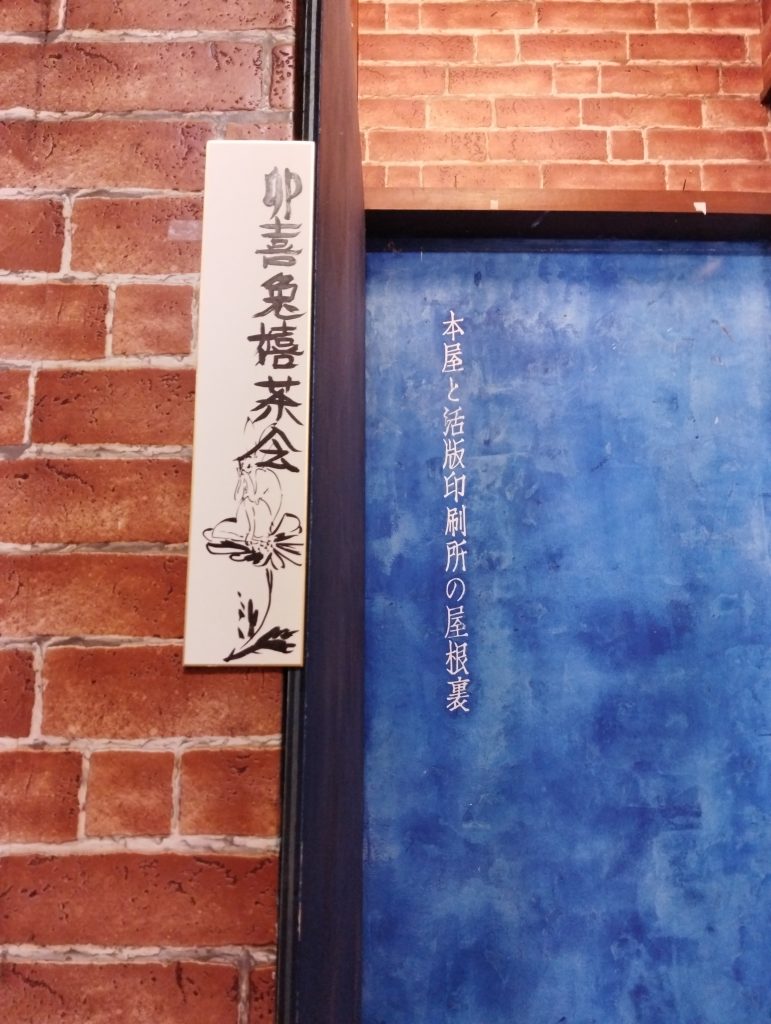 卯喜兔嬉茶会
本屋と活版印刷所の屋根裏